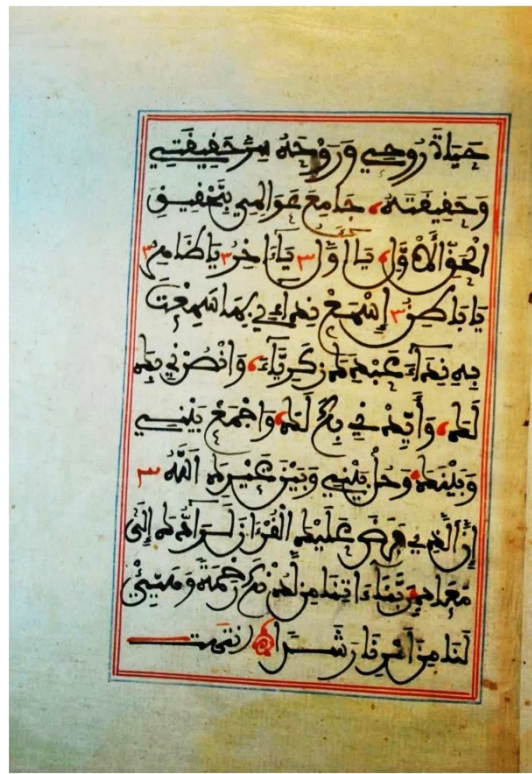 حَيَاةَ رُوحِي وَرَوْحُهُ سِرَّ حَقِيقَتِي
وَحَقِيقَتُهُ، جَامِعَ عَوَالِمِي بِتَحْقِيقِ
الْحَقِّ الْأَوَّلِ، يَا أَوَّلُ ٣ يَاءَاخِرُ ٣ يَا ظَاهِرُ ٣
يَا بَاطِنُ ٣ اِسْمَعْ نِدَاءِي بِمَا سَمِعْتَ
بِهِ نِدَآءَ عَبْدِكَ زَكَرِيَّآءَ، وَانْصُرْنِي بِكَ
لَكَ، وَأَيِّدْنِي بِكَ لَكَ، وَاجْمَعْ بَيْنِي
وَبَيْنَكَ، وَحُلْ بَيْنِي وَبَيْنَ غَيْرِكَ اَللَّهُ ٣
إِنَّ الَّذِي فَرَضَ عَلَيْكَ الْقُرْءَانَ لَرَآدُّكَ إِلَىٰ
مَعَادٍ، رَبَّنَآ ءَاتِنَا مِن لَّدُنْكَ رَحْمَةً وَهَيِّئْ
لَنَا مِنْ أَمْرِنَا رَشَدًا انتهت